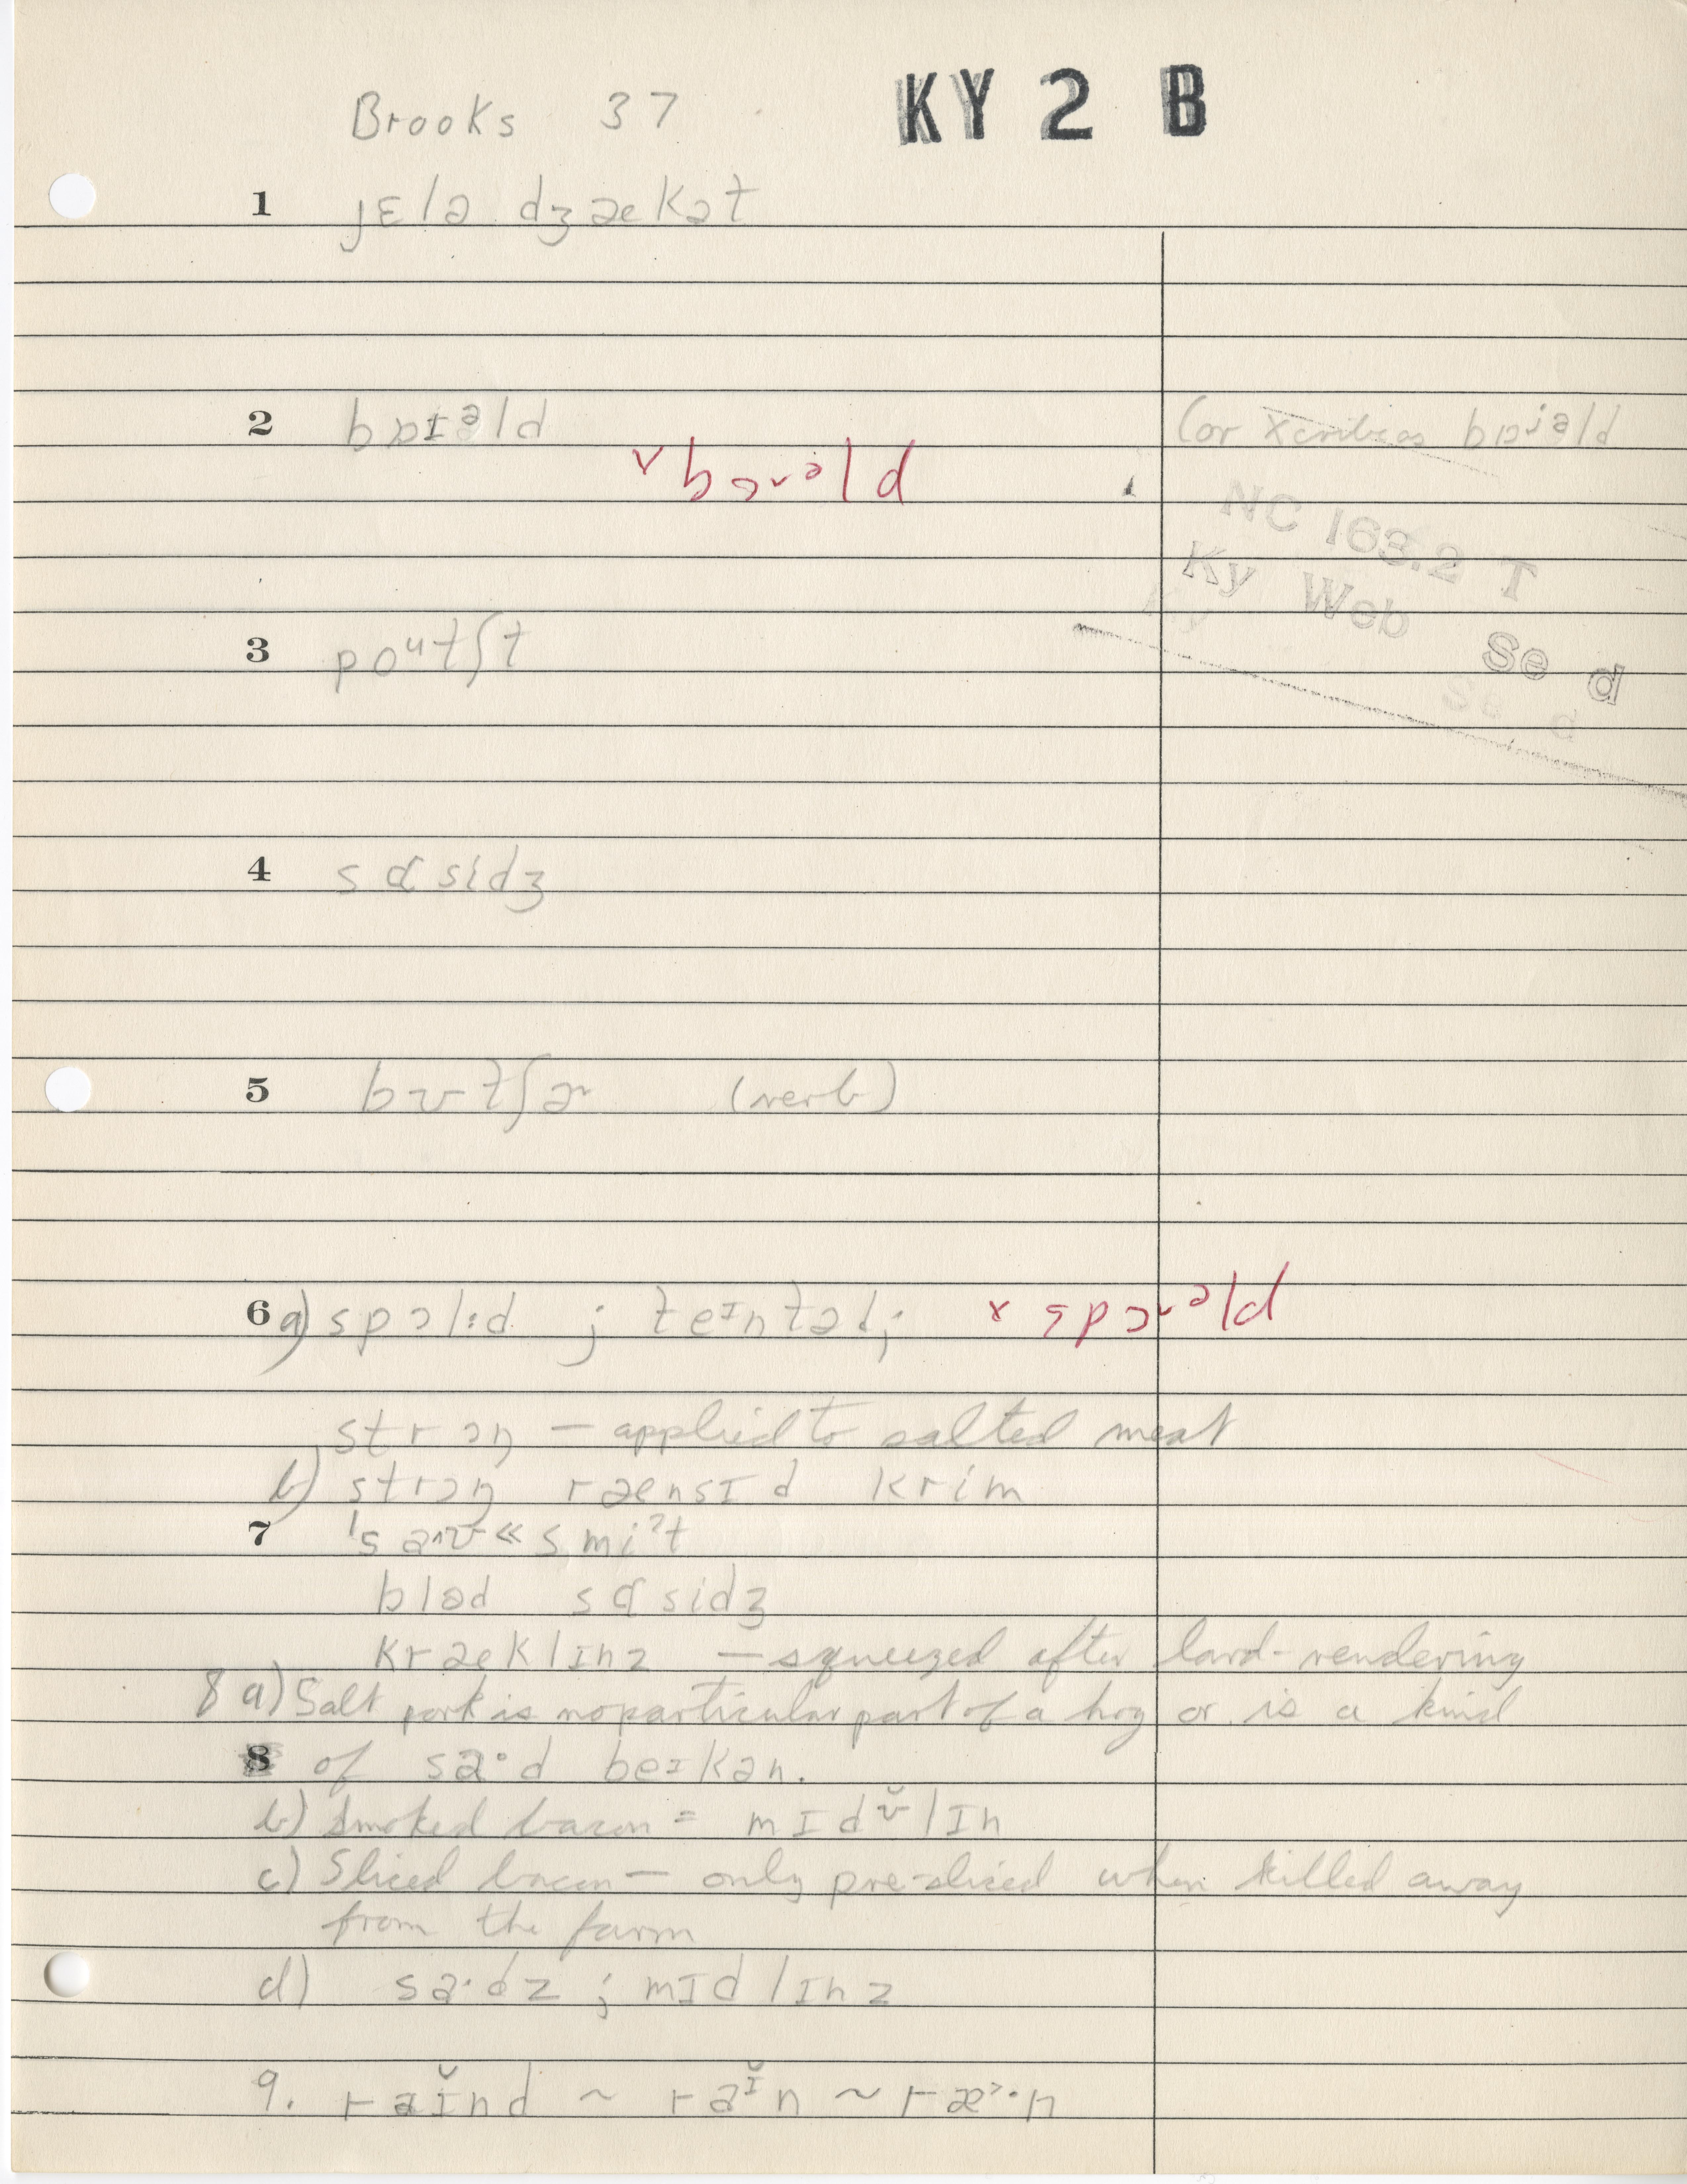 Brooks 37 KY 2 B
1 jɛlə dʒækət
2 bɒɪəld (or bɒjəld
˅bɔ˞əld
NC 163.2 T
Ky Web Se d
3 poᵘtʃt
4 sɑsidʒ
5 bʊtʃɚ (verb)
6 a) spɔl:d ; teɪntəd; x spɔ˞əld
strɔŋ — applied to salted meat
b) strɔŋ rænsɪd krim
7 ˈsaʊ « s miˀt
bləd sɑsidʒ
kræklɪnz — squeezed after lard-rendering
8 a) Salt pork is no particular part of a hog or is a kind
8 of sa·d beɪkən.
b) Smoked bacon = mɪdʊ̆lɪn
c) Sliced bacon — only pre-sliced when killed away
from the farm
d) sa·dz ; mɪdlɪnz
9. raɪ̆nd ~ raɪ̆n ~ ræ˃·n